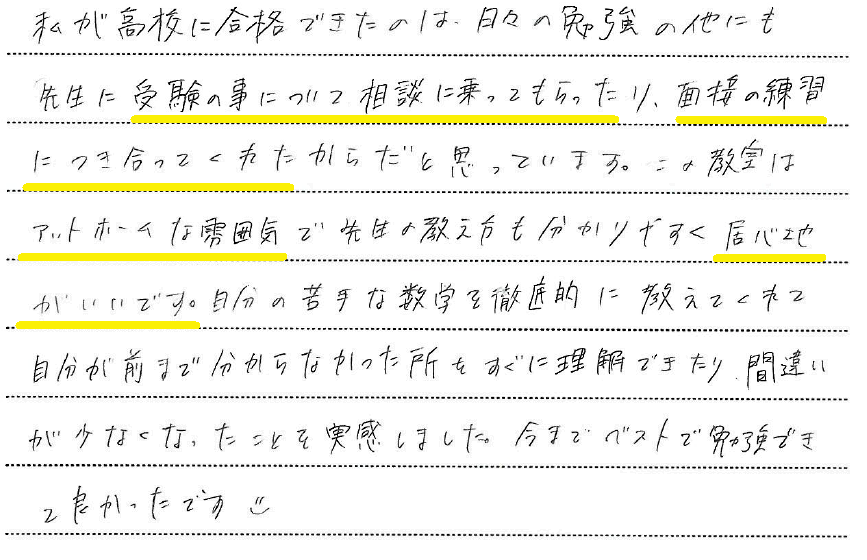 私が高校に合格できたのは、日々の勉強の他にも
先生に受験の事について相談に乗ってもらったり、面接の練習
につき合ってくれたからだと思っています。この教室は
アットホームな雰囲気で先生の教え方も分かりやすく居心地
がいいです。自分の苦手な数学を徹底的に教えてくれて
自分が前まで分からなかった所をすぐに理解できたり、間違い
が少なくなったことを実感しました。今までベストで勉強でき
て良かったです